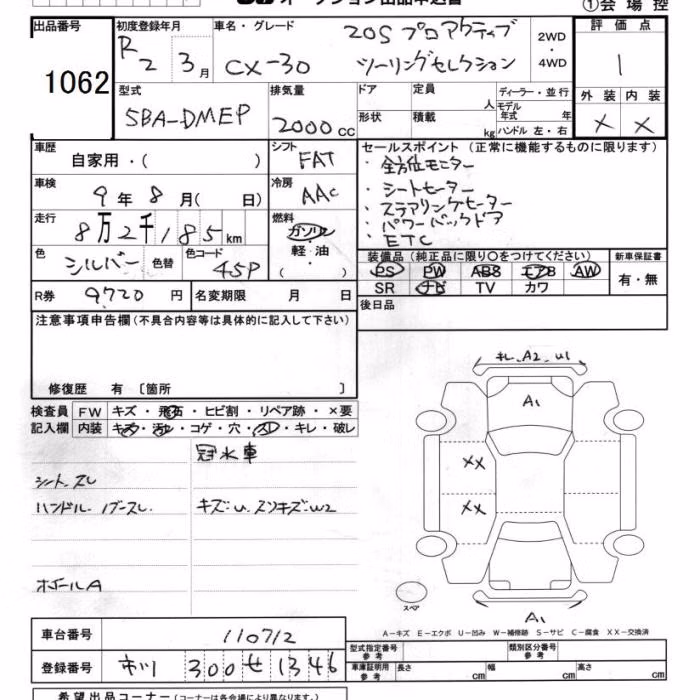 出品番号
1062
初度登録年月
R2 3月
車名・グレード
CX-30
20S プロアクティブ
ツーリングセレクション
2WD
・
4WD
①会場控
評価点
1
外装 内装
× ×
型式
5BA-DMEP
排気量
2000cc
ドア
形状
定員 人
積載 kg
ディーラー・並行
モデル年式 年
ハンドル 左・右
車歴
自家用・( )
シフト
FAT
車検
9年8月( 日)
冷房
AAC
走行
8万2千185km
燃料
ガソリン
軽・油
( )
色
シルバー
色替
色コード
45P
R券
9720円
名変期限 月 日
セールスポイント (正常に機能するものに限ります)
・全方位モニター
・シートヒーター
・ステアリングヒーター
・パワーバックドア
・ETC
装備品 (純正品に限り○をつけてください)
PS PW ABS エアB AW
SR ナビ TV カワ
新車保証書
有・無
後日品
注意事項申告欄(不具合内容等は具体的に記入して下さい)
修復歴 有〔箇所 〕
検査員
記入欄
FW キズ・飛石・ヒビ割・リペア跡・×要
内装 キズ・汚れ・コゲ・穴・スレ・キレ・破レ
冠水車
シート.スレ
キズ.U.スリキズ.W2
キレ.A2.U1
A1
XX
XX
A1
スペア
A-キズ E-エクボ U-凹み W-補修跡 S-サビ C-腐食 XX-交換済
車台番号
110712
登録番号
市川 300 せ 1346
型式指定番号
参考
類別区分番号
参考
車庫証明用
参考
長さ cm
幅 cm
高さ cm
希望出品コーナー(コーナーは各会場により異なります。)